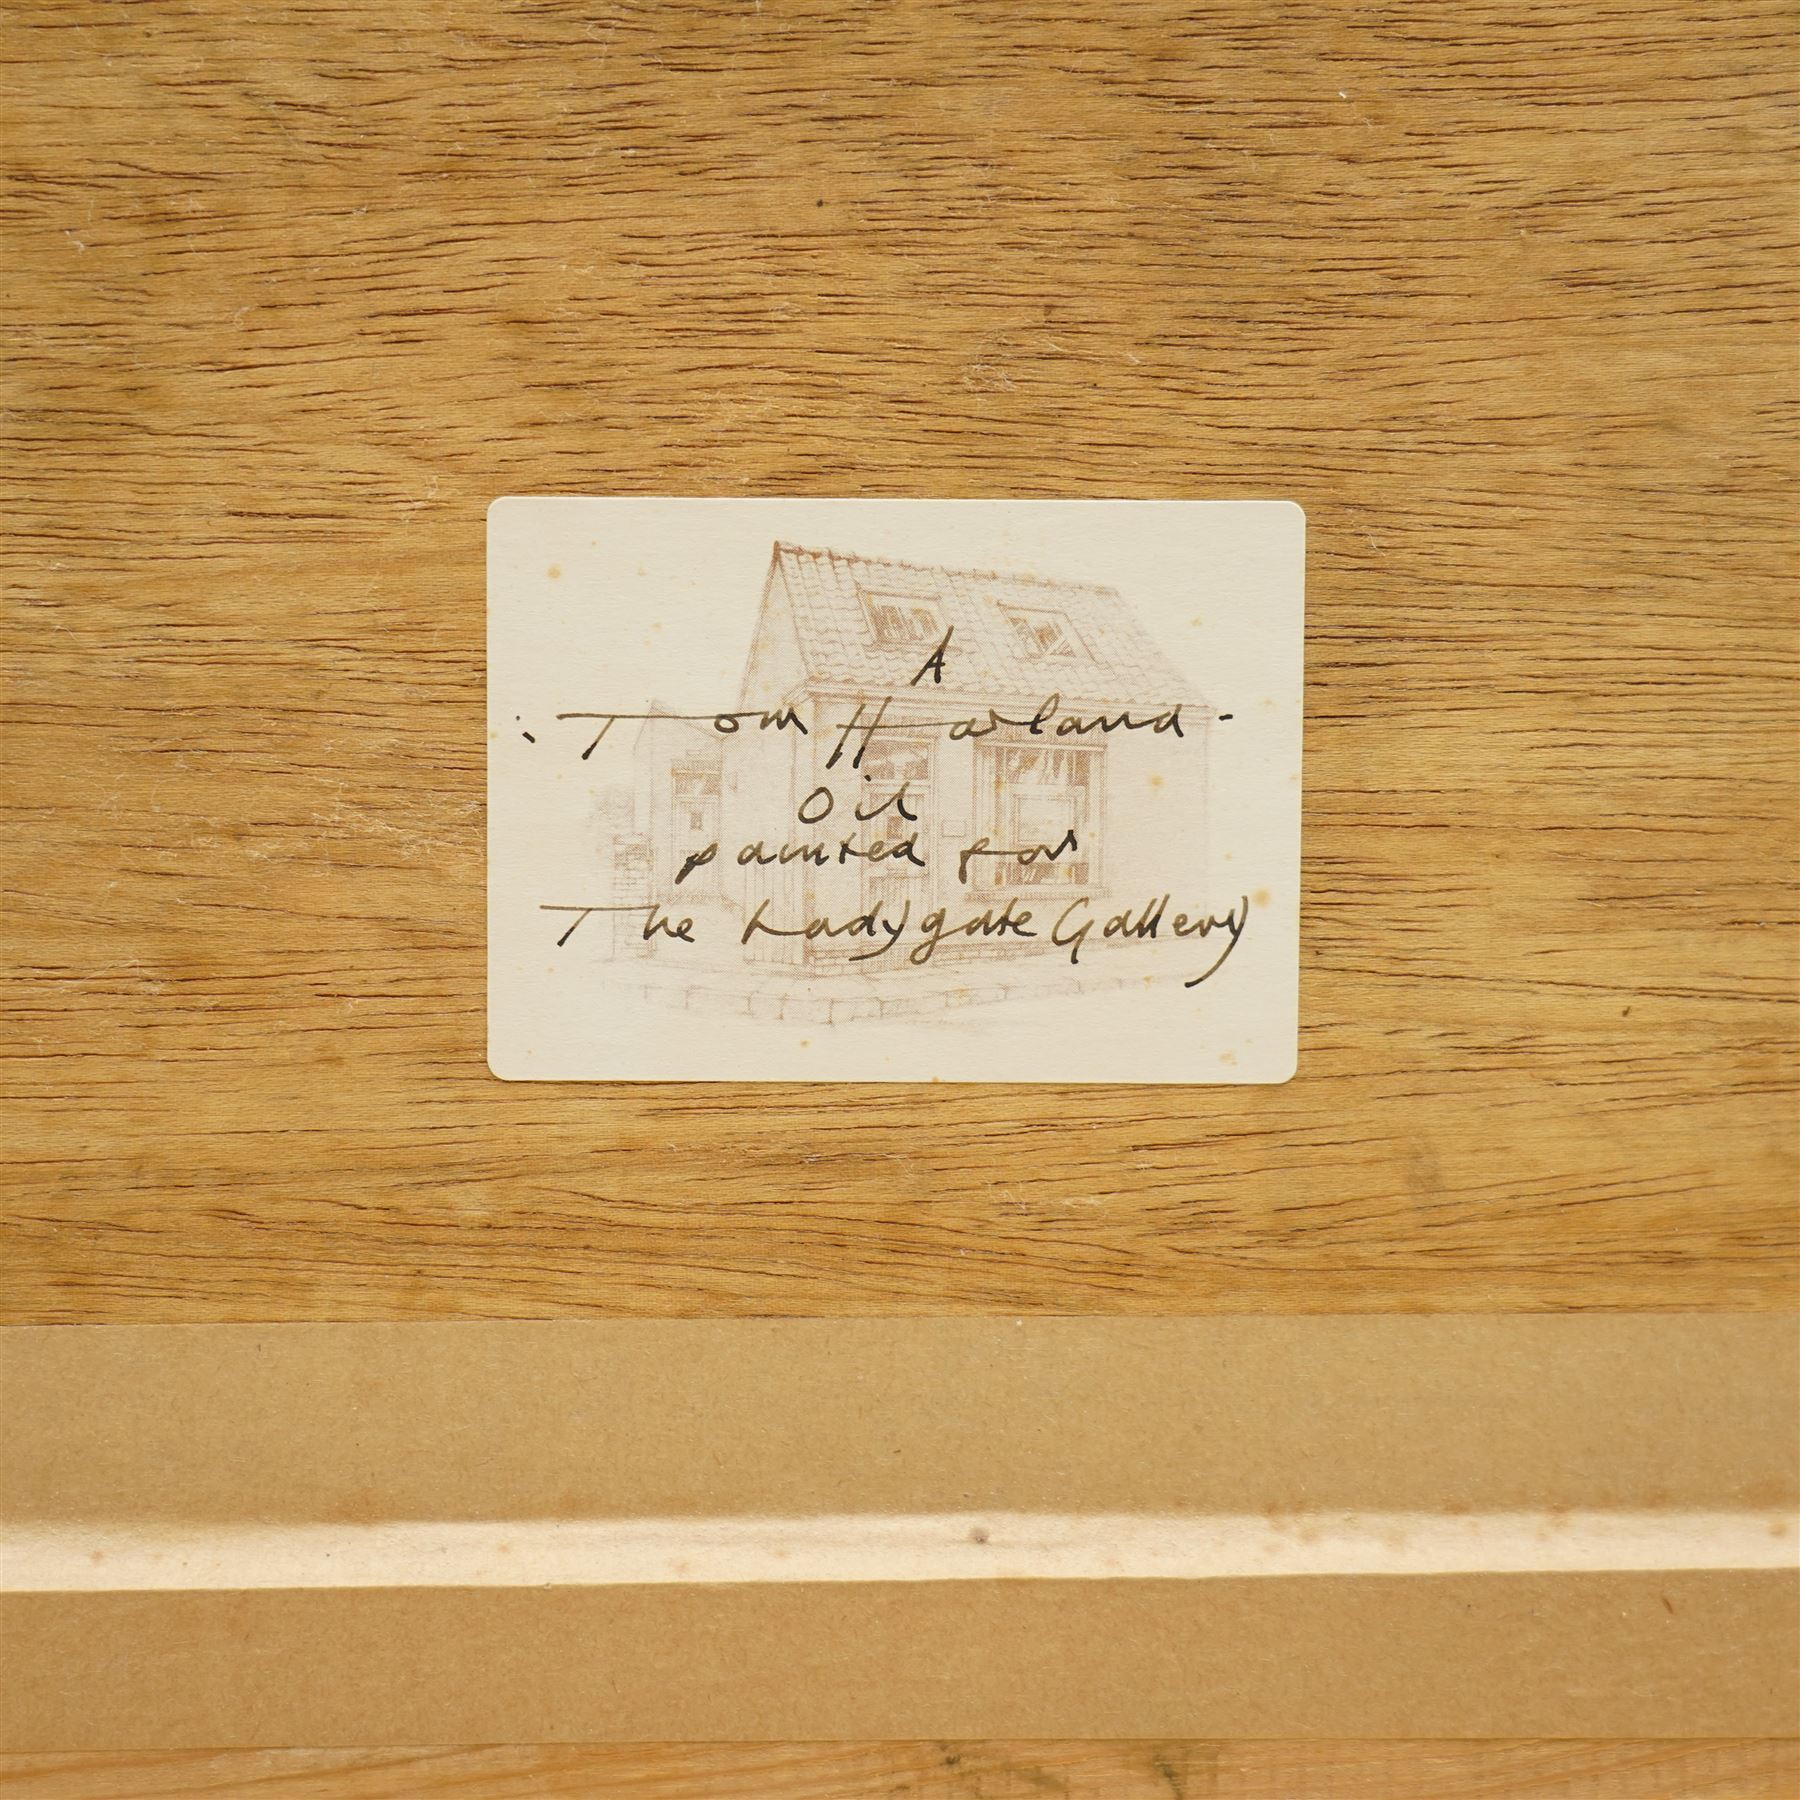 A
. Tom Harland -
Oil
painted for
The Ladygate Gallery